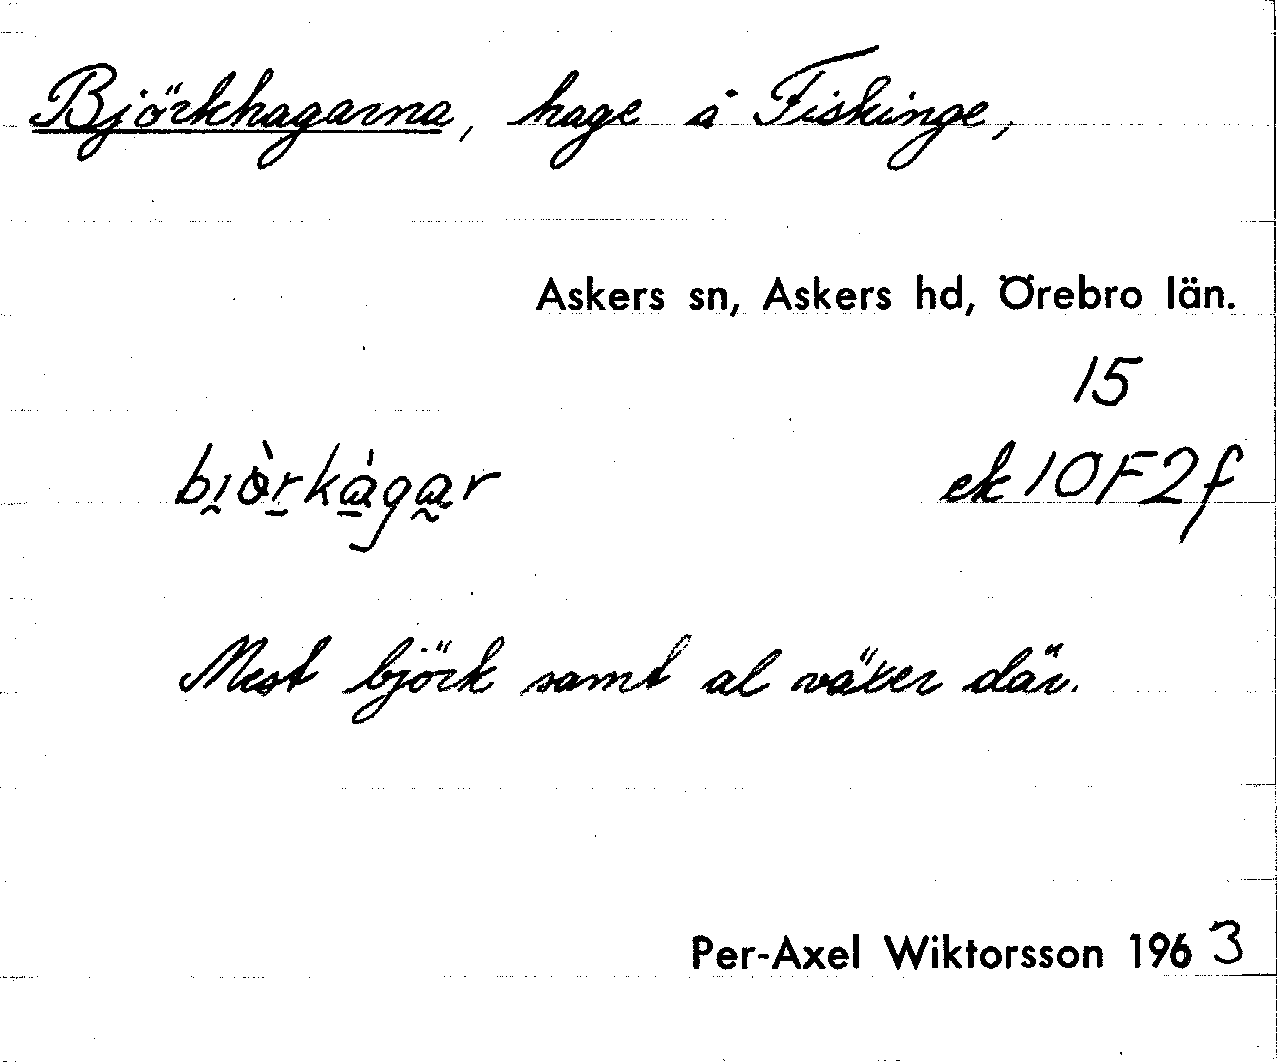 Björkhagarna, hage å Fiskinge,
Askers sn, Askers hd, Örebro län.
15
bi̯ὸrkágar ek 10F2f
Mest björk samt al växer där.
Per-Axel Wiktorsson 1963